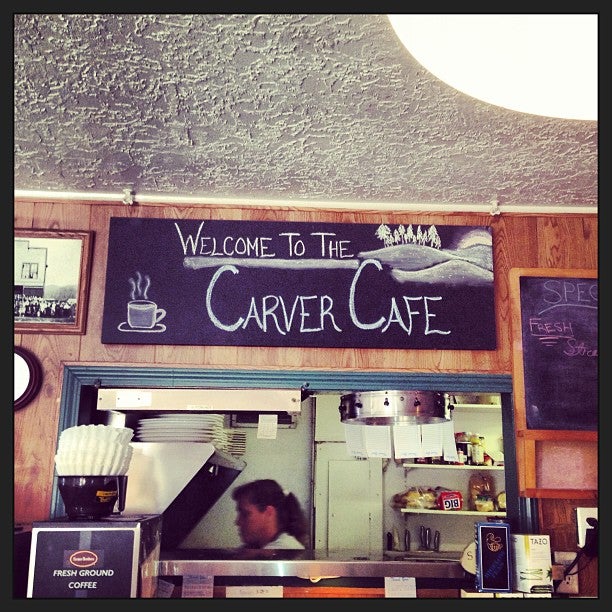 WELCOME TO THE
CARVER CAFE
SPEC
FRESH
BIG
TAZO
FRESH GROUND
COFFEE